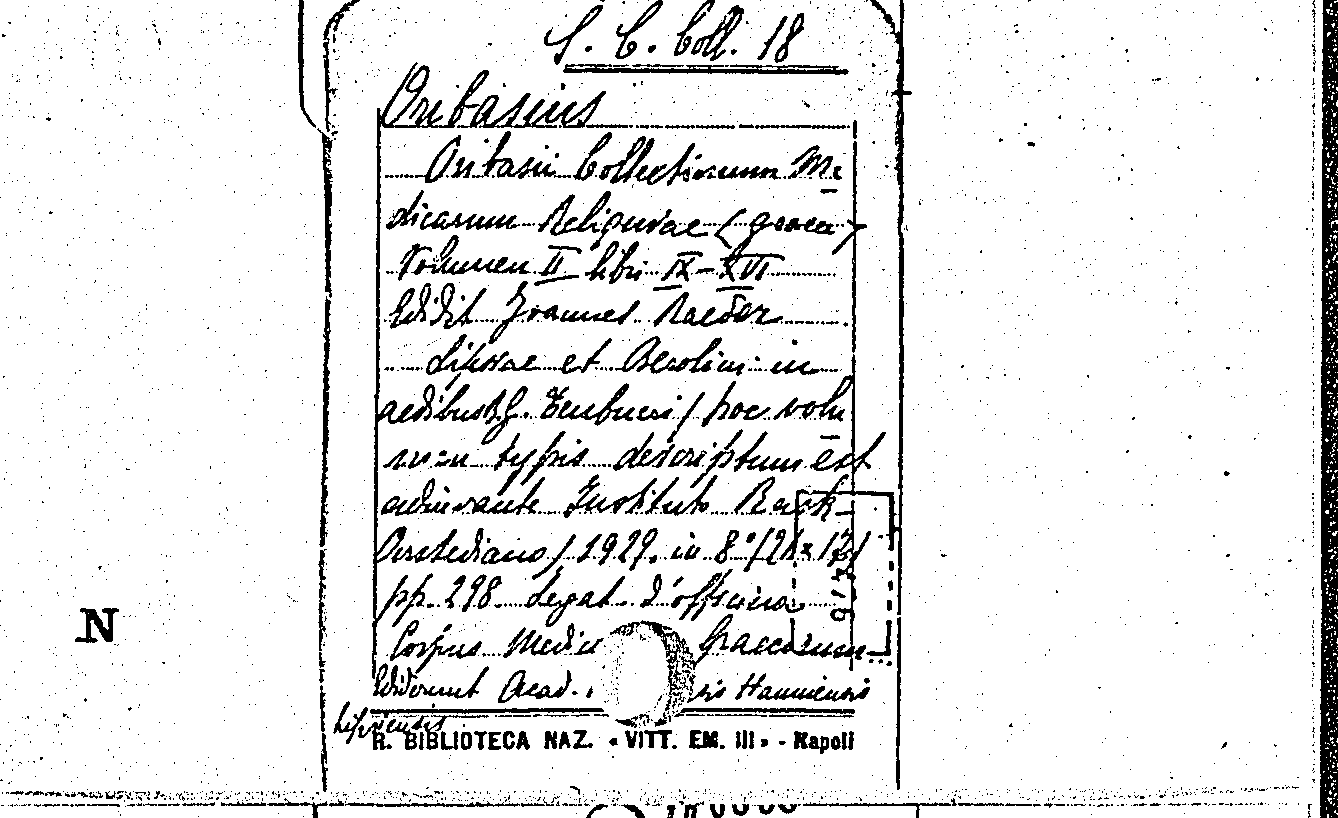 S. C. Coll. 18
Oribasius
Oribasii Collectionum Me
dicarum Reliquiae (graece)
Volumen II libri IX-XVI
Edidit Joannes Raeder
Lipsiae et Berolini in
aedibus B.G. Teubneri / hoc volu
men typis descriptum est
adiuvante Instituto Rask-
Oerstediano / 1929. in 8° (21x17)
pp. 298 Legat. d'officina
Corpus Medic Graecorum
Ediderunt Acad. Hauniensis
Lipsiensis
R. BIBLIOTECA NAZ. « VITT. EM. III » - Napoli
N